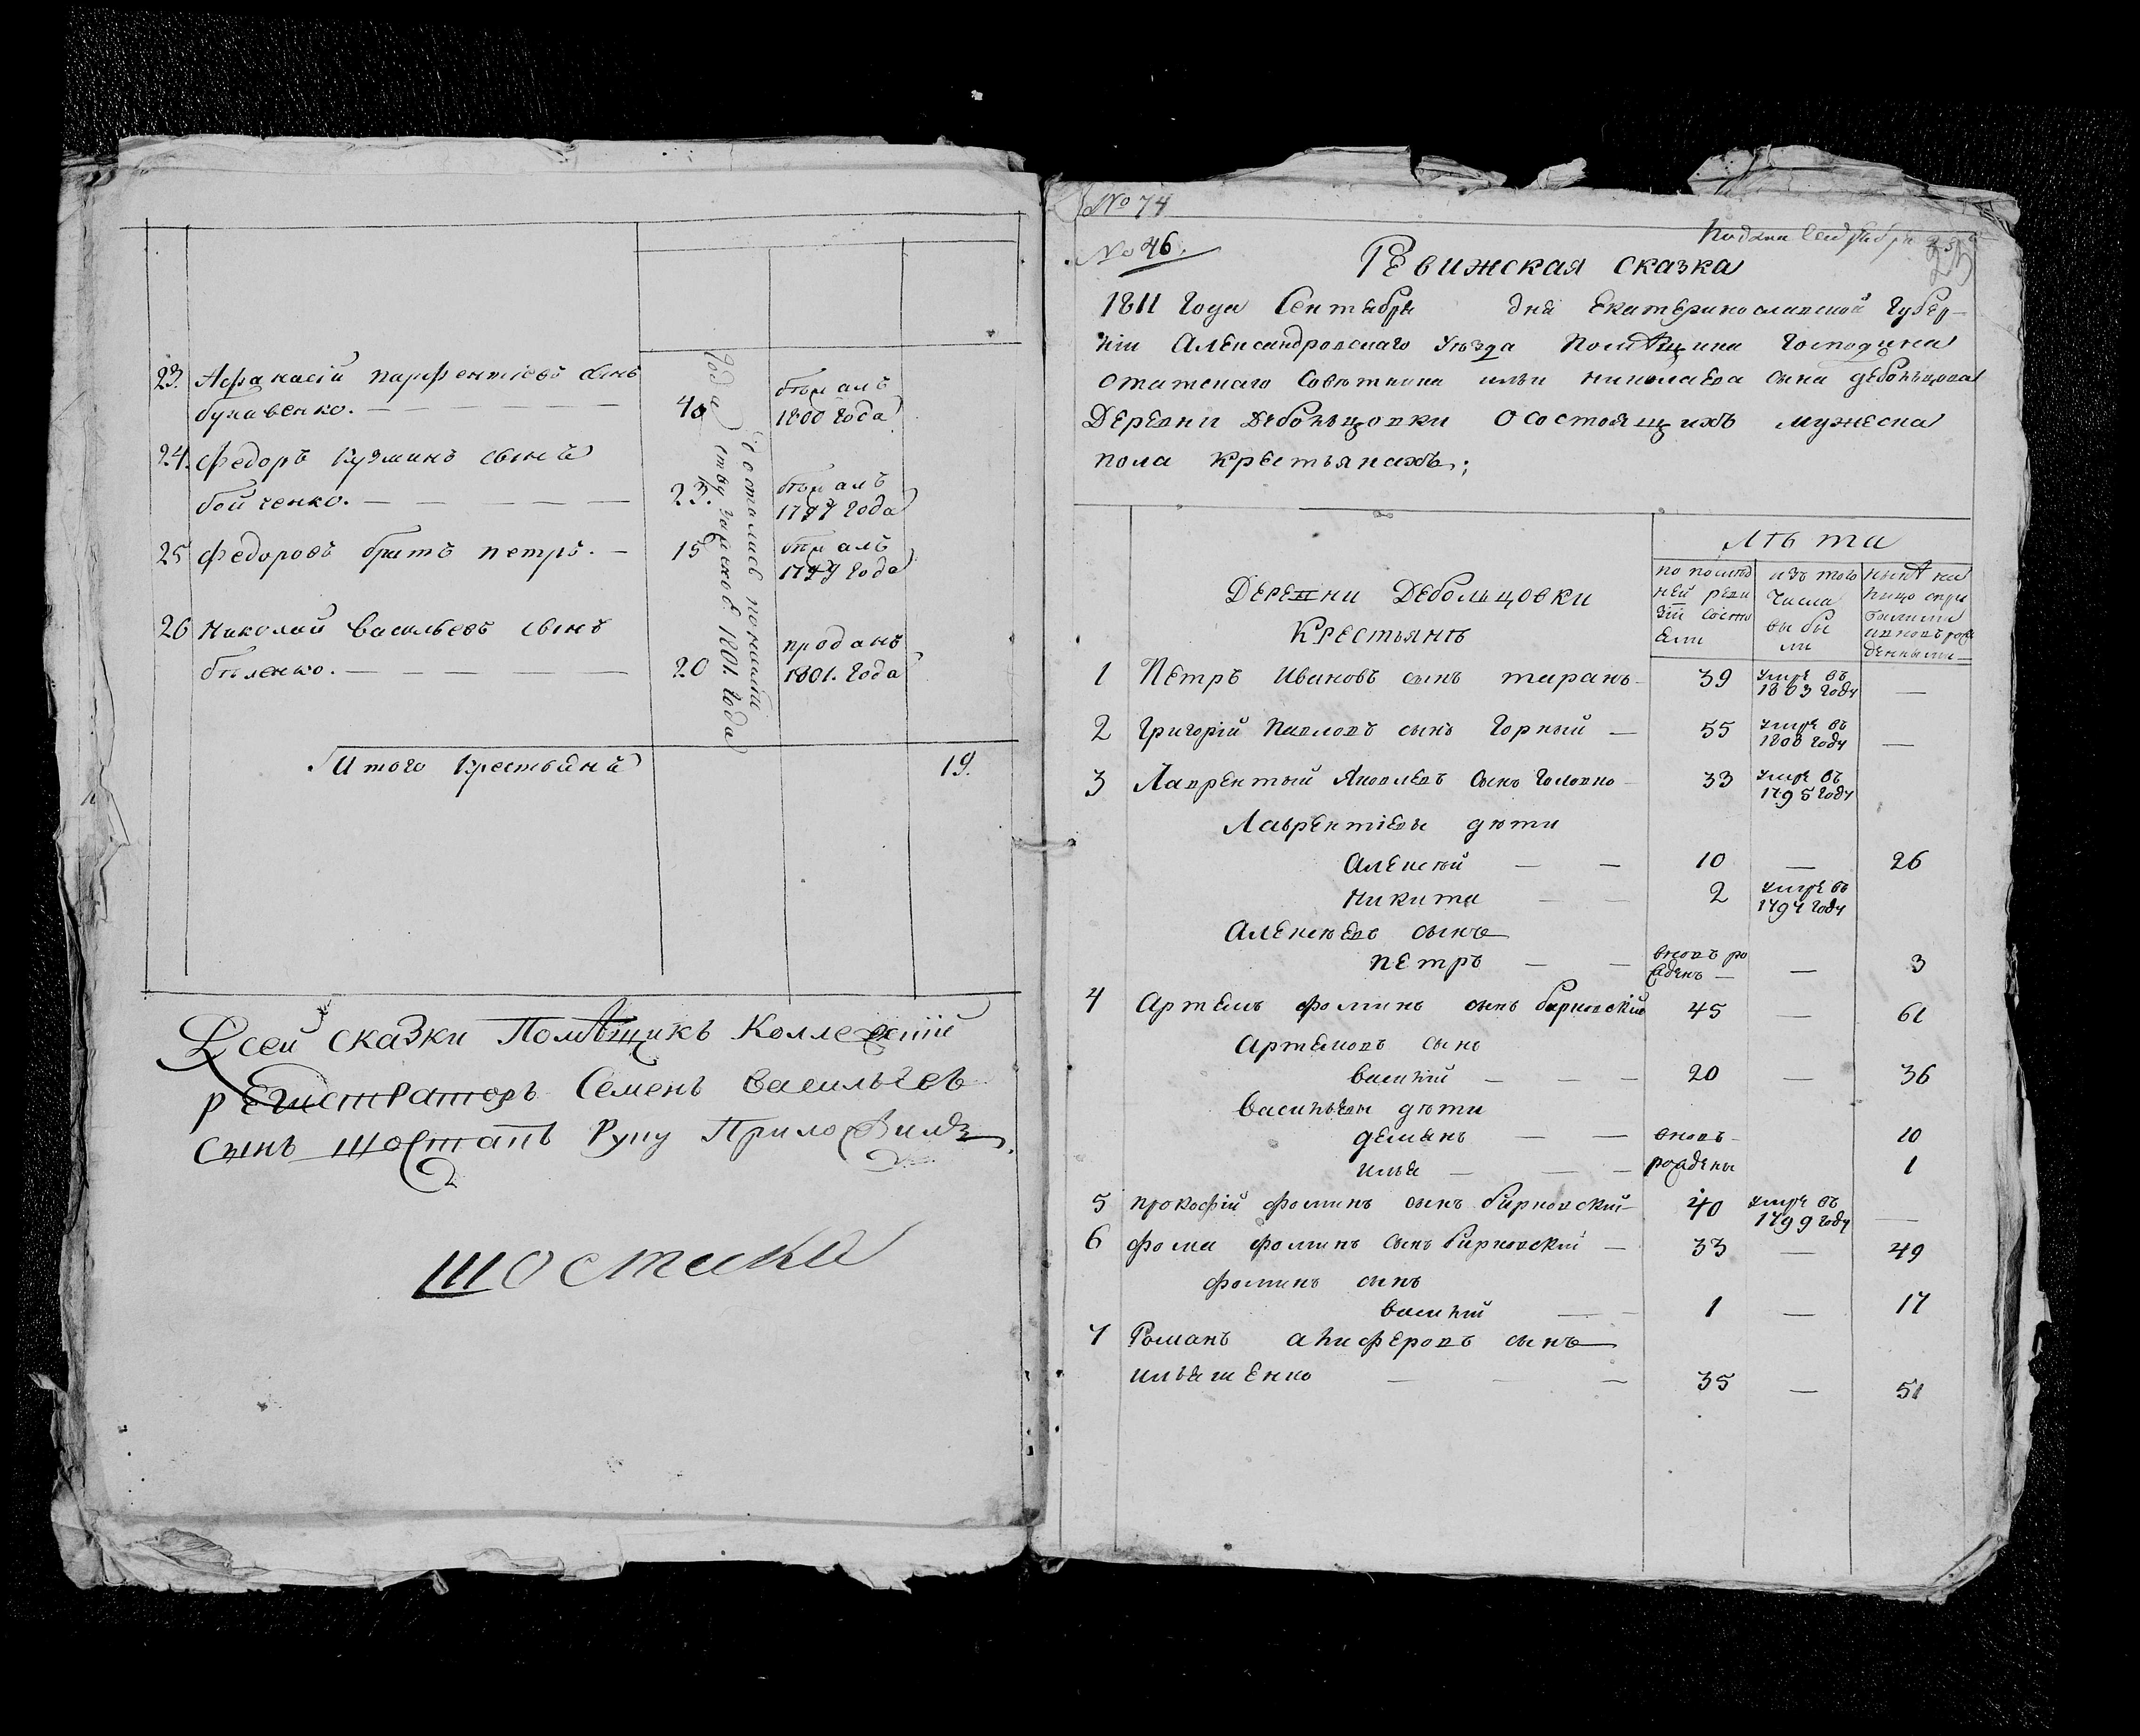 23. Афанасій парфентіевъ сынъ
бунавенко. — 40 бѣжалъ 1800 года
24. Федоръ Кузминъ сынъ
бойченко. — 23. бѣжалъ 1797 года
25 Федоровъ братъ петръ. — 15 бѣжалъ 1797 года
26 Николай Васильевъ сынъ
бѣленко. — 20 проданъ 1801. года
достались по наслѣд
ству 1801. года
года
Итого Крестьянъ 19.
К сей сказки Помѣщикъ Коллежскій
регистраторъ Семенъ васильевъ
сынъ шостакъ Руку Приложилъ
шостакъ
№ 74
№ 46.
Подана Сентября
Ревижская сказка
1811 года Сентября дня Екатеринославской Губер-
ніи Александровскаго Уѣзда Помѣщика Господина
статскаго Совѣтника ильи николаева сына дебольцова
Деревни Дебольцовки О состоящихъ мужеска
пола крестьянахъ;
Лѣта
Деревни Дебольцовки
Крестьянъ
по послѣд
ней реви
зіи состо
яли
изъ того
числа
выбы
ли
нынѣ на
лицо съ при
былыми
и вновь рож
денными
1 Петръ Ивановъ сынъ таранъ 39 умре въ 1803 году —
2 Григорій Павловъ сынъ Горный — 55 умре въ 1808 году —
3 Лаврентый Яковлевъ сынъ Головко 33 умре въ 1795 году
Лаврентіевы дѣти
Алексѣй — — 10 — 26
Никита — — 2 умре въ 1797 году
Алексѣевъ сынъ
петръ — — вновь рожденъ — — 3
4 Артемъ фоминъ сынъ барковскій 45 — 61
Артемовъ сынъ
василій — — — 20 — 36
васильевы дѣти
демьянъ — — вновь 10
илья — — — рождены 1
5 прокофій фоминъ сынъ барковскій 40 умре въ 1799 году —
6 фома фоминъ сынъ барковскій — 33 — 49
фоминъ сынъ
василій — — 1 — 17
7 Романъ анифіеровъ сынъ
ильяшенко — — — 35 — 51